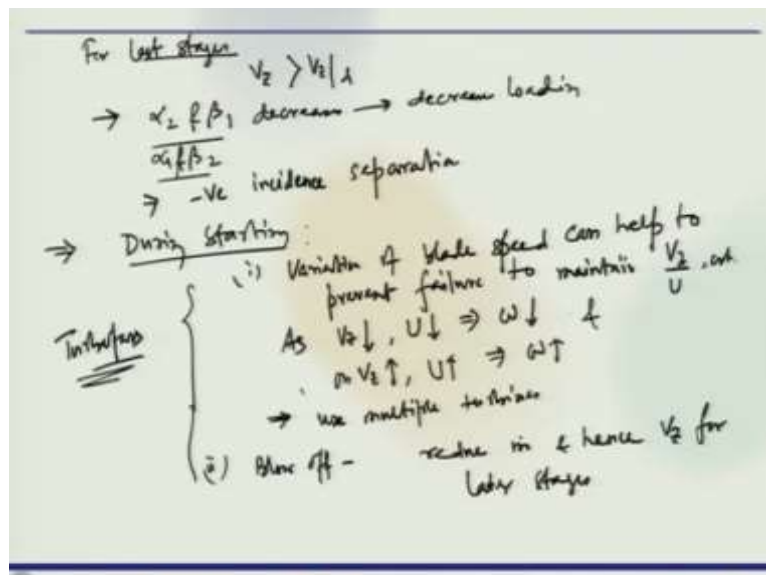 For last stages
Vz > Vz|d
→ α2 & β1 decreases → decrease loading
α1 & β2
⇒ -ve incidence separation
⇒ During starting:
(i) Variation of blade speed can help to
prevent failure to maintain Vz/U
As Vz↓, U↓ ⇒ ω↓ &
on Vz↑, U↑ ⇒ ω↑
Turbofans
→ use multiple turbines
(ii) Blow off - reduce ṁ & hence Vz for
later stages